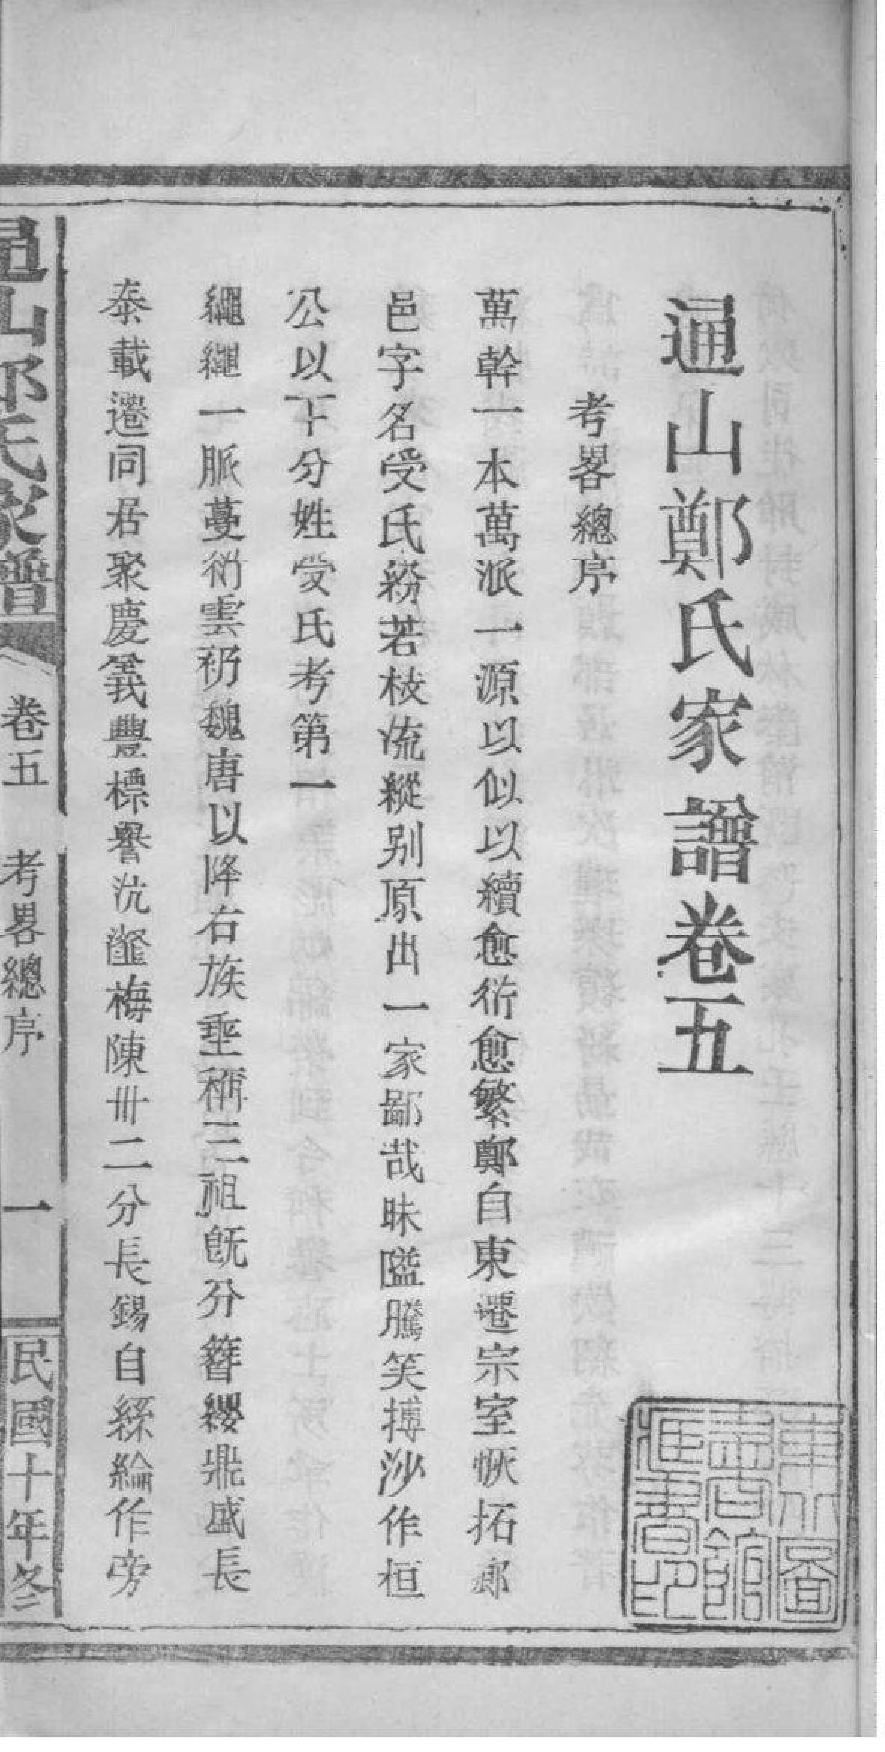 通山鄭氏家譜卷五
考畧總序
萬幹一本萬派一源以似以續愈衍愈繁鄭自東遷宗室恢拓郷
邑字名受氏紛若枝流縱别原出一家鄙哉昧隘騰笑摶沙作桓
公以下分姓受氏考第一
繩繩一脈蔓衍雲礽魏唐以降右族垂稱三祖旣分簪纓鼎盛長
泰載遷同居聚慶義豐標譽沆瀣梅陳卅二分長錫自絲綸作旁
通山鄭氏家譜
卷五
考畧總序
一
民國十年修